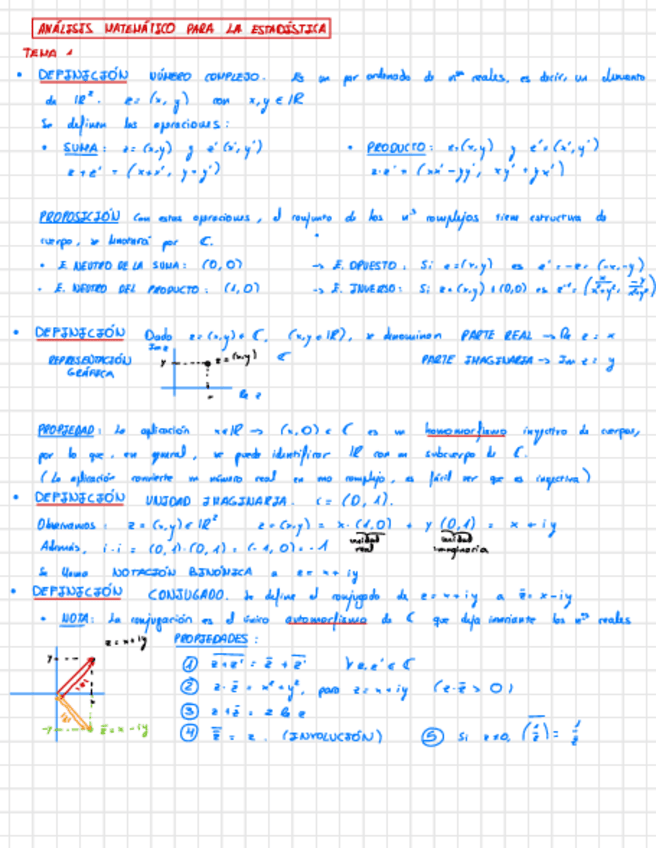 ANÁLISIS MATEMÁTICO PARA LA ESTADÍSTICA
TEMA 1
• DEFINICIÓN NÚMERO COMPLEJO. Es un par ordenado de nos reales, es decir, un elemento
de IR². z = (x, y) con x, y ∈ IR
Se definen las operaciones:
• SUMA: z = (x,y) y z' (x', y')
• PRODUCTO: z = (x,y) y z' = (x', y')
z + z' = (x+x', y+y')
z·z' = (xx' - yy', xy' + yx')
PROPOSICIÓN Con estas operaciones, el conjunto de los nos complejos tiene estructura de
cuerpo, se denotará por ℂ.
• E. NEUTRO DE LA SUMA: (0,0)
→ E. OPUESTO: Si z = (x,y) es z' = -z = (-x, -y)
• E. NEUTRO DEL PRODUCTO: (1,0)
→ E. INVERSO: Si z = (x,y) ≠ (0,0) es z⁻¹ = (x/x²+y², -y/x²+y²)
• DEFINICIÓN Dado z = (x,y) ∈ ℂ, (x,y ∈ IR), se denominan PARTE REAL → Re z = x
REPRESENTACIÓN GRÁFICA
Im z
y
z = (x,y)
ℂ
x
Re z
PARTE IMAGINARIA → Im z = y
PROPIEDAD: La aplicación x ∈ IR → (x, 0) ∈ ℂ es un homomorfismo inyectivo de cuerpos,
por lo que, en general, se puede identificar IR con un subcuerpo de ℂ.
(La aplicación convierte un número real en uno complejo, es fácil ver que es inyectiva)
• DEFINICIÓN UNIDAD IMAGINARIA. i = (0, 1).
Observamos: z = (x,y) ∈ IR² z = (x,y) = x·(1,0) + y (0,1) = x + iy
unidad real
unidad imaginaria
Además, i·i = (0,1)·(0,1) = (-1,0) = -1
Se llama NOTACIÓN BINÓMICA a z = x + iy
• DEFINICIÓN CONJUGADO. Se define el conjugado de z = x + iy a z̄ = x - iy
• NOTA: La conjugación es el único automorfismo de ℂ que deja invariante los nos reales
z = x + iy
y
-y
z̄ = x - iy
PROPIEDADES:
① z+z' = z̄ + z̄' ∀ z, z' ∈ ℂ
② z·z̄ = x² + y², para z = x + iy (z·z̄ > 0)
③ z + z̄ = 2 Re z
④ z̿ = z. (INVOLUCIÓN)
⑤ Si z ≠ 0, (1/z) = 1/z̄